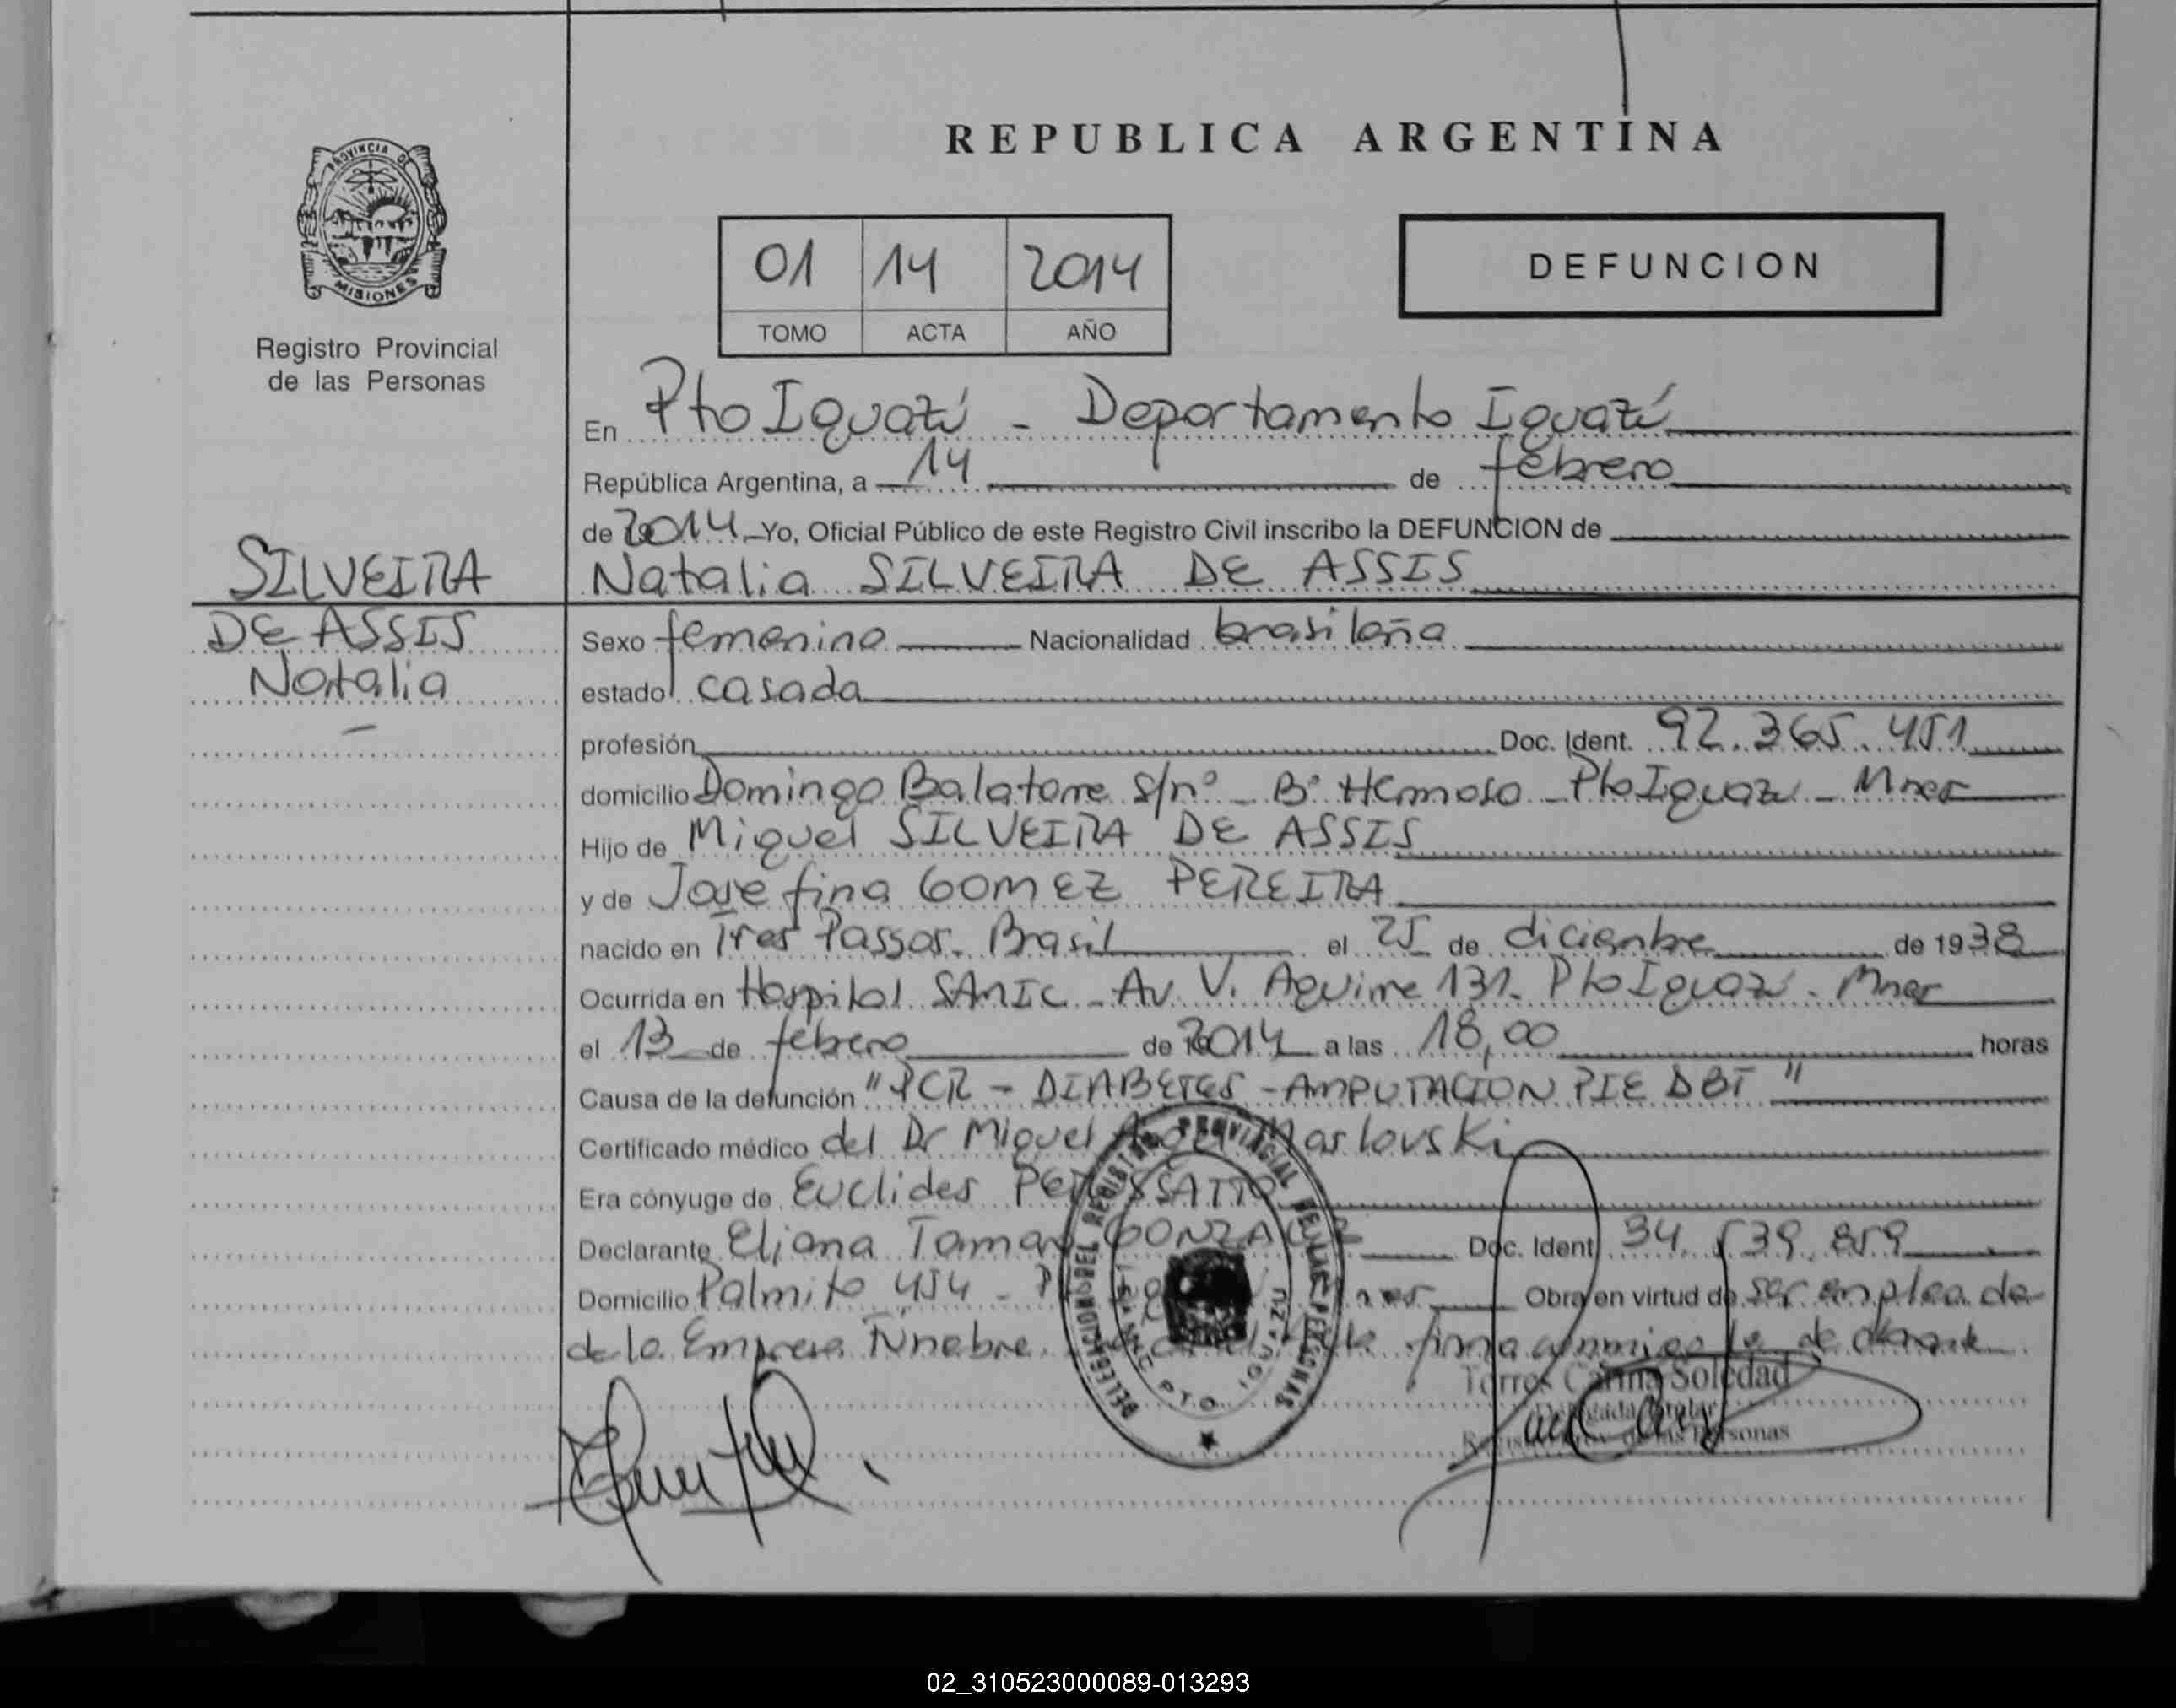 REPUBLICA ARGENTINA
PROVINCIA DE
MISIONES
Registro Provincial
de las Personas
01 14 2014
TOMO ACTA AÑO
DEFUNCION
En Pto Iguazú - Departamento Iguazú
República Argentina, a 14 de febrero
de 2014 Yo, Oficial Público de este Registro Civil inscribo la DEFUNCION de
SILVEIRA
DE ASSIS
Natalia
Natalia SILVEIRA DE ASSIS
Sexo femenino Nacionalidad brasileña
estado casada
profesión Doc. Ident. 92.365.451
domicilio Domingo Balatorre s/nº - Bº Hermoso - Pto Iguazú - Mnes
Hijo de Miguel SILVEIRA DE ASSIS
y de Josefina GOMEZ PEREIRA
nacido en Tres Passos - Brasil el 25 de diciembre de 1938
Ocurrida en Hospital SAMIC - Av V. Aguirre 131 - Pto Iguazú - Mnes
el 13 de febrero de 2014 a las 18,00 horas
Causa de la defunción "PCR - DIABETES - AMPUTACION PIE DBT"
Certificado médico del Dr Miguel Angel Marlovski
Era cónyuge de Euclides
Declarante Eliana Tamara GONZALEZ Doc. Ident 34.539.859
Domicilio Palmito 454 - Obra en virtud de ser empleada
de la Empresa Fúnebre firma conmigo la declarante
DELEGACION DEL REGISTRO PROVINCIAL DE LAS PERSONAS
PTO. IGUAZU
Torres Carina Soledad
Delegada Titular
Registro de las Personas
02_310523000089-013293